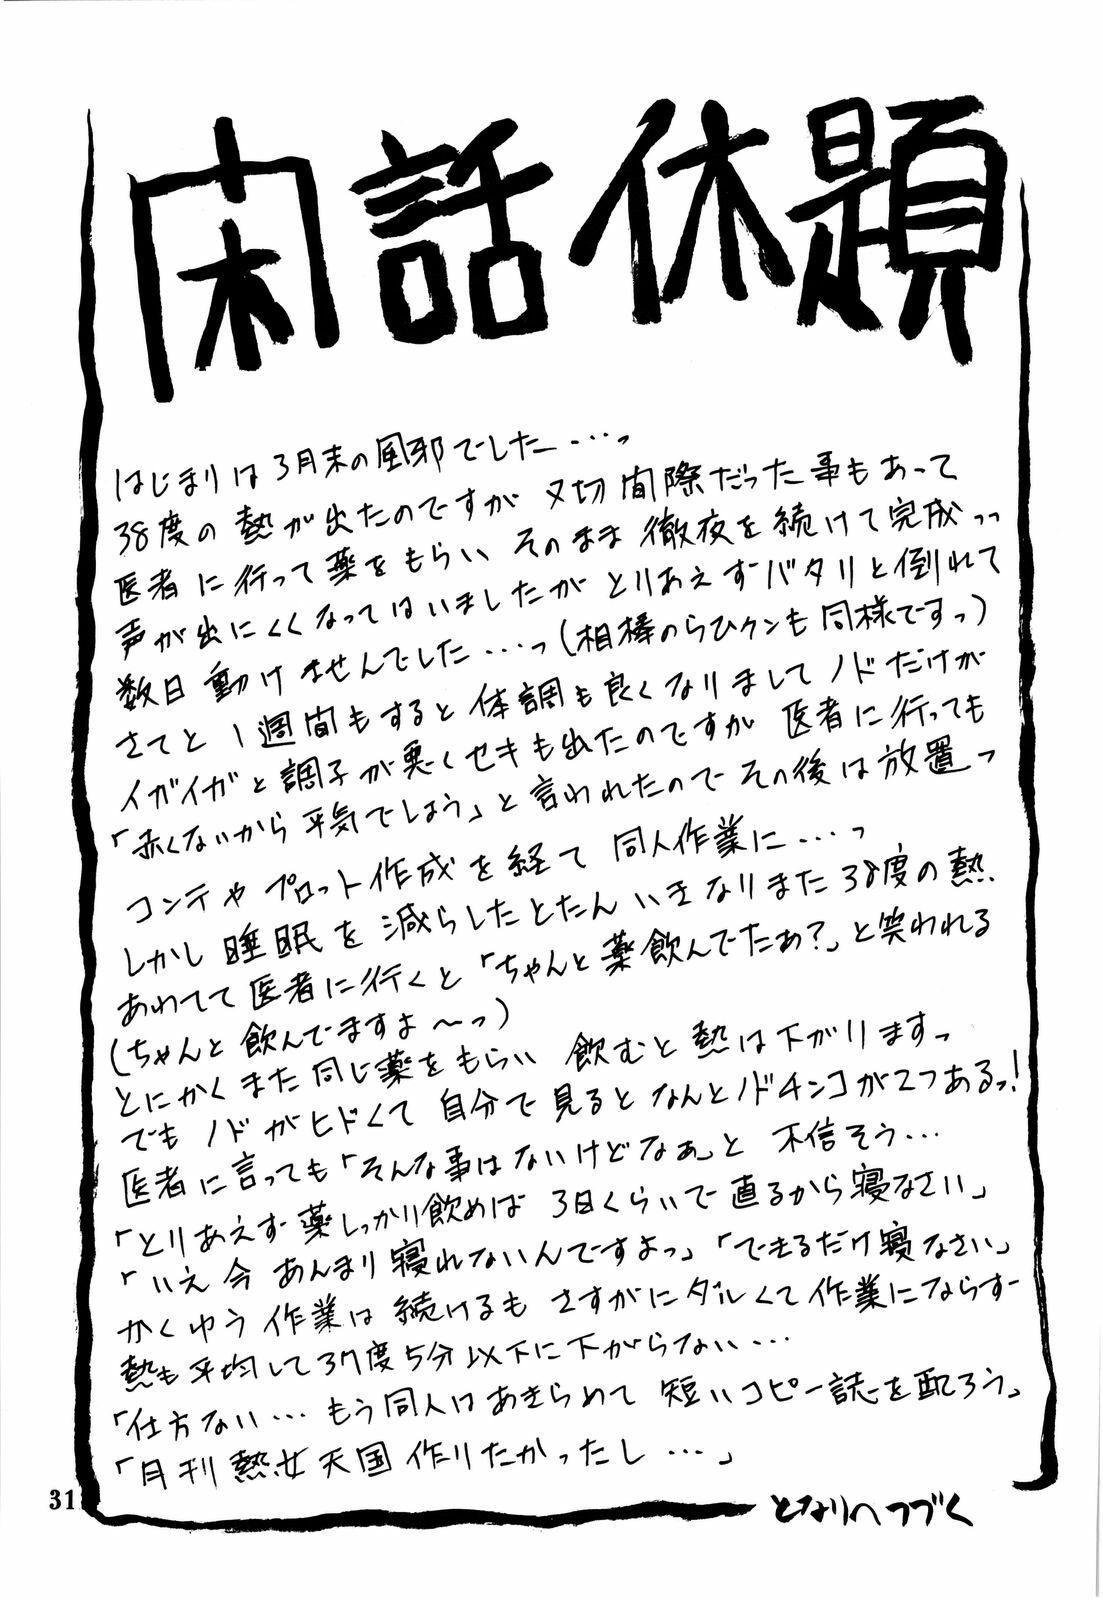 閑話休題
はじまりは3月末の風邪でした…っ
38度の熱が出たのですが〆切間際だった事もあって
医者に行って薬をもらい そのまま徹夜を続けて完成っっ
声が出にくくなってはいましたが とりあえずバタリと倒れて
数日動けませんでした…っ(相棒のらひクンも同様ですっ)
さてと 1週間もすると体調も良くなりまして ノドだけが
イガイガと調子が悪くセキも出たのですが 医者に行っても
「赤くないから平気でしょう」と言われたので その後は放置っ
コンテや プロット作成を経て 同人作業に…っ
しかし睡眠を減らしたとたん いきなりまた38度の熱
あわてて医者に行くと「ちゃんと薬飲んでたぁ?」と笑われる
(ちゃんと飲んでますよ〜っ)
とにかくまた同じ薬をもらい 飲むと熱は下がりますっ
でも ノドがヒドくて 自分で見るとなんとノドチンコが2つあるっ!
医者に言っても「そんな事はないけどなぁ」と 不信そう…
「とりあえず薬しっかり飲めば 3日くらいで直るから寝なさい」
「いえ今 あんまり寝れないんですよっ」「できるだけ寝なさい」
かくゆう作業は続けるも さすがにダルくて作業にならず
熱も平均して37度5分以下に下がらない…
「仕方ない…もう同人はあきらめて 短いコピー誌を配ろう」
「月刊熱女天国作りたかったし…」
となりへつづく
31